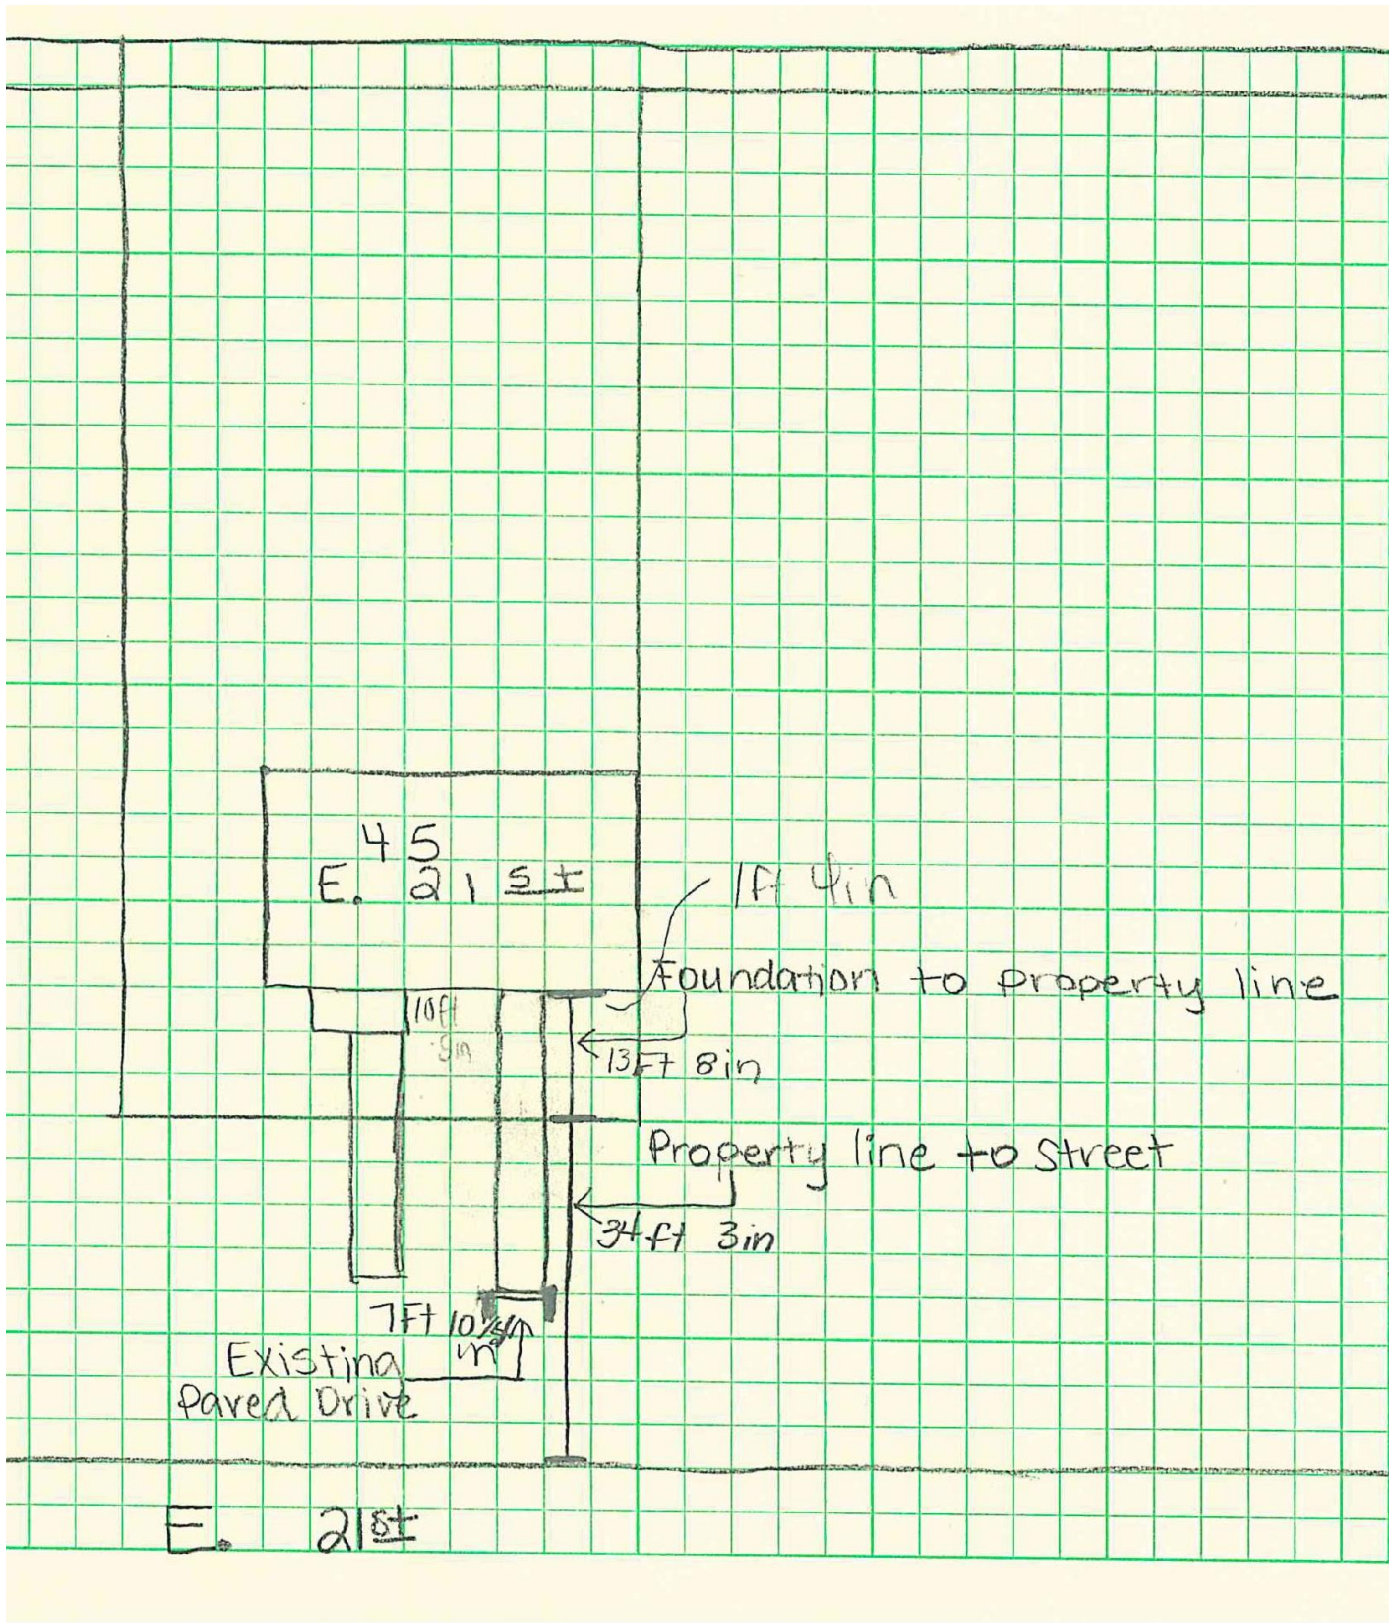 45
E. 21 st
1ft 4in
Foundation to property line
10ft
13Ft 8in
Property line to Street
34ft 3in
7Ft
Existing
Paved Drive
E. 21st